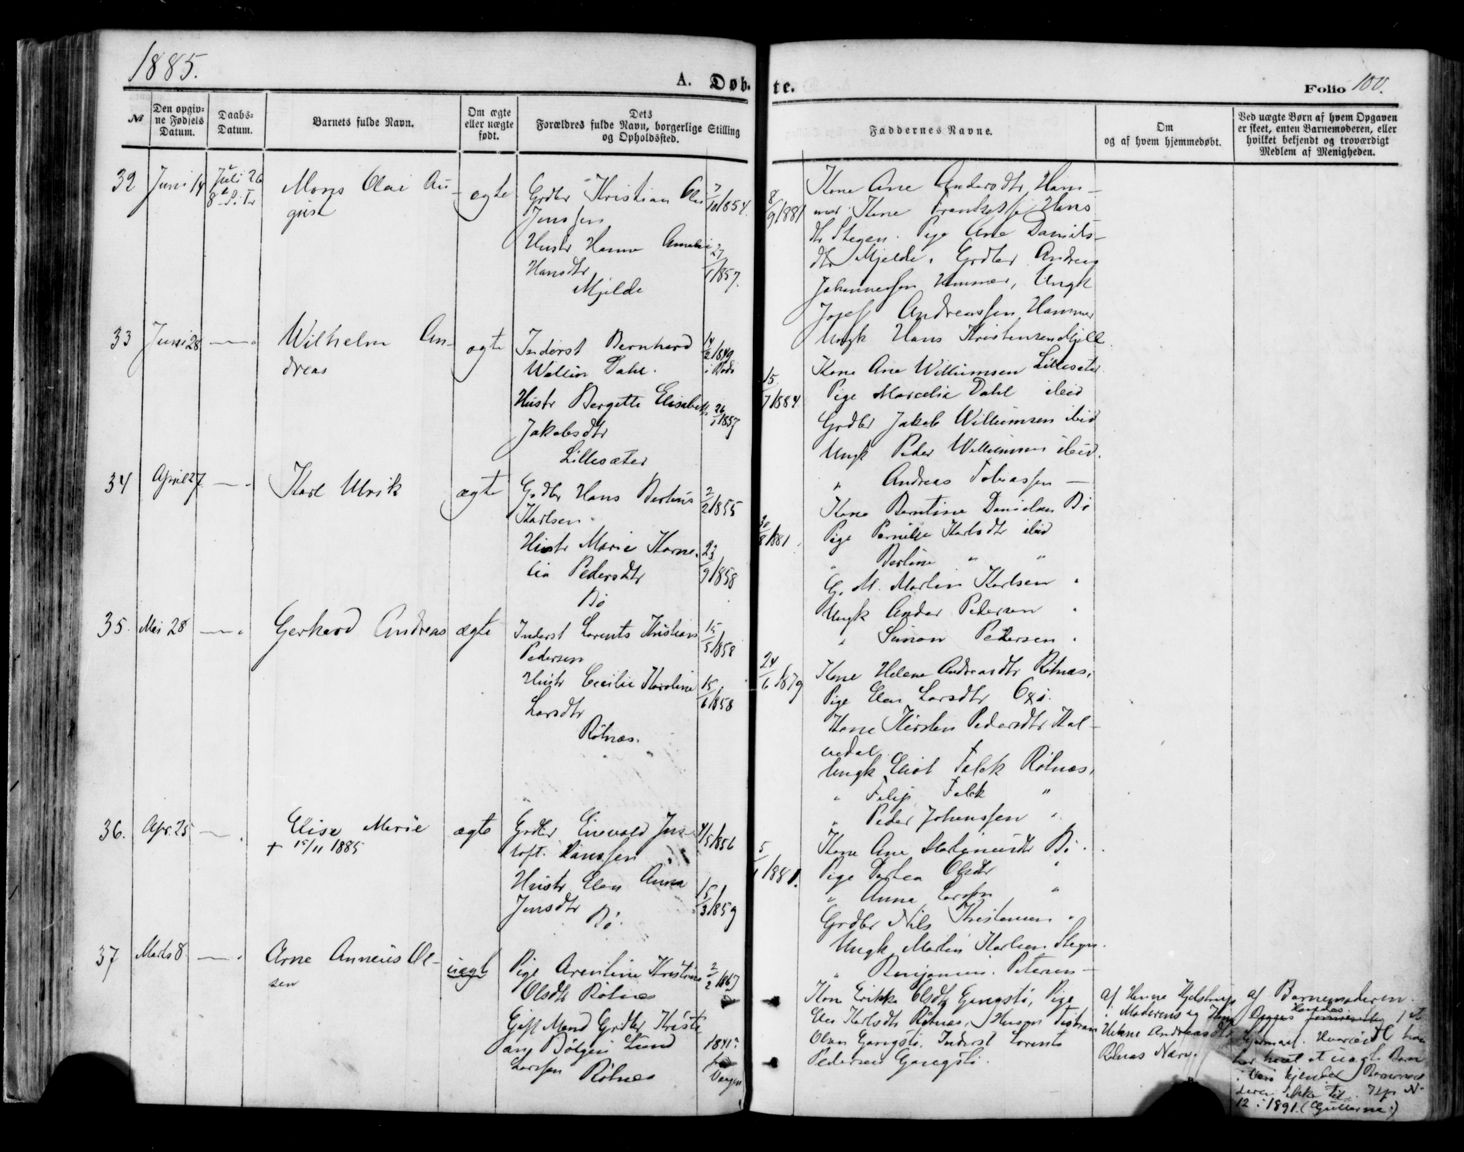 1885.
A. Døb-
te.
Folio 100.
№
Den opgiv-
ne Fødsels
Datum.
Daabs-
Datum.
Barnets fulde Navn.
Om ægte
eller uægte
født.
Dets
Forældres fulde Navn, borgerlige Stilling
og Opholdssted.
Faddernes Navne.
Om
og af hvem hjemmedøbt.
Ved uægte Børn af hvem Opgaven
er skeet, enten Barnemoderen, eller
hvilket bekjendt og troværdigt
Medlem af Menigheden.
32
Juni 14
Juli 26
Olai Au-
gust
ægte
Grdbr Kristian Olai
Jenssen
Hustr Hanna
Hansdtr
Mjelde
1854.
1857.
8/9 1881
Kone Ane Andersdtr, Ham-
mer. Kone Hans
dtr Stegen. Pige Ane Daniels-
dtr Mjelde. Grdbr Andreas
Johannessen, Hammer, Ungk
Josef Andreassen Hammer
Ungk Hans Kristensen
33
Juni 28
Wilhelm An-
dreas
ægte
Inderst Bernhard
Dahl.
Hustr Bergette Elisabeth
Jakobsdtr
Lillesæter
1849
1857
15/7 1884
Kone Ane Williumsen Lillesæter
Pige Marcelia Dahl ibid
Grdbr Jakob Williumsen ibid
Ungk Peder Williumsen ibid.
" Andreas Tobiassen —
34
April 27
Karl Ulrik
ægte
Grdbr Hans Bertius
Karlsen
Hustr Marie Korne-
lia Pedersdtr
Bø
2/2 1855
23/9 1858
30/8 1881
Kone Berntine Danielsen Bø
Pige Pernille Karlsdtr ibid
" Berline " "
G. M. Martin Karlsen "
Ungk Andor Pedersen "
" Simon Pedersen "
35.
Mai 28
Gerhard Andreas
ægte
Inderst Lorents Kristian
Pedersen
Hustr Cecilie Karoline
Larsdtr
Røtnæs.
15/5 1858
15/6 1858
24/6 1879
Kone Helene Andreasdtr Røtnæs.
Pige Elen Larsdtr
Kone Kirsten Pedersdtr Kal-
vedal
Ungk Eliot Falck Røtnæs.
" Filip Falck "
" Peder Johanssen "
36.
Apr. 25
Elise Marie
+ 15/11 1885
ægte
Grdbr Enevald Jus-
toft Hanssen
Hustr Elen Anna
Jensdtr
Bø.
4/5 1856
15/3 1859
5/1 1881.
Kone Ane Bø.
Pige Dortea Olsdtr "
" Anna Larsen "
Grdbr Nils Kristensen "
Ungk Martin Karlsen Stegen
" Benjamin Petersen —
37
Marts 8
Arne Anneus Ol-
sen
uægte
Pige Arentine Kristine
Olsdtr Røtnæs
Gift Mand Grdbr Kristi-
an Bøtger Lund
Larssen
Røtnæs
1841?
Kone Erikka Olsdtr Gangstø, Pige
Elen Karlsdtr Røtnæs, Husm Tistram
Olsen Gangstø. Inderst Lorents
Pedersen Gangstø.
af Hanna Hjelstrup
i Moderens og Kone
Helene Andreasdtr
Røtnæs Nærv.
af Barnemoderen.
12 : 1891.